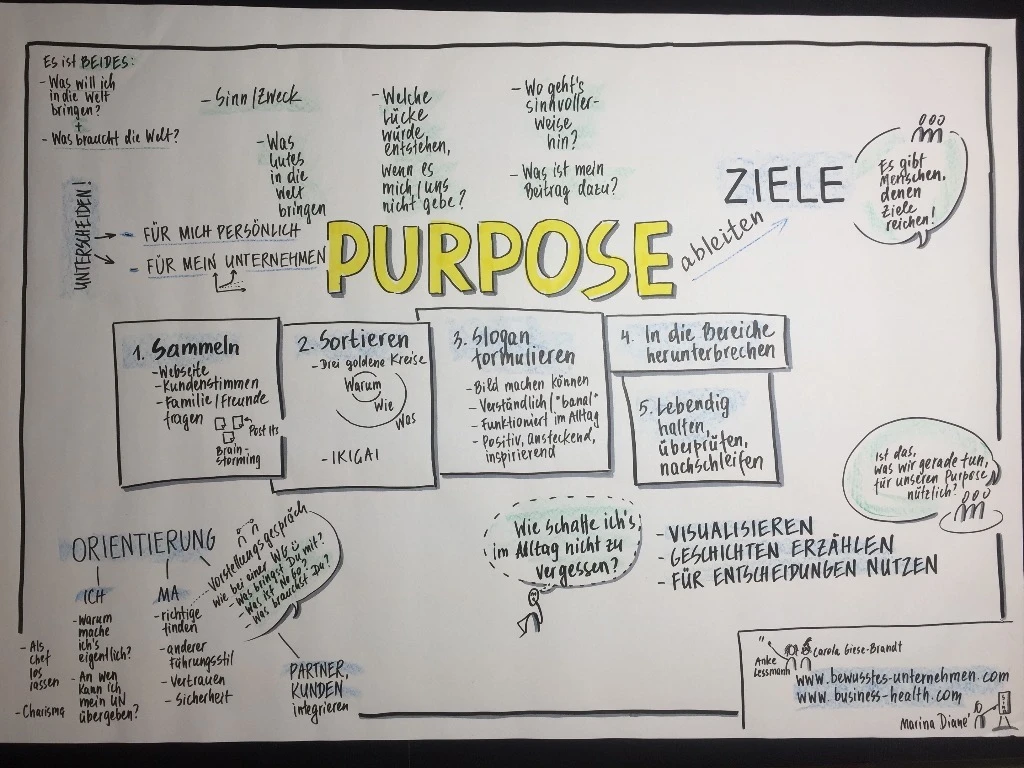 Es ist BEIDES:
- Was will ich
in die Welt
bringen?
+
- Was braucht die Welt?
- Sinn/Zweck
- Was
Gutes
in die
Welt
bringen
- Welche
Lücke
würde
entstehen,
wenn es
mich/uns
nicht gebe?
- Wo geht's
sinnvoller-
weise
hin?
- Was ist mein
Beitrag dazu?
ZIELE
ableiten
Es gibt
Menschen,
denen
Ziele
reichen!
UNTERSCHEIDEN!
- FÜR MICH PERSÖNLICH
- FÜR MEIN UNTERNEHMEN
PURPOSE
1. Sammeln
- Webseite
- Kundenstimmen
- Familie/Freunde
fragen
Post Its
Brain-
storming
2. Sortieren
- Drei goldene Kreise
Warum
Wie
Was
- IKIGAI
3. Slogan
formulieren
- Bild machen können
- Verständlich/"banal"
- Funktioniert im Alltag
- Positiv, ansteckend,
inspirierend
4. In die Bereiche
herunterbrechen
5. Lebendig
halten,
überprüfen,
nachschleifen
Ist das,
was wir gerade tun,
für unseren Purpose
nützlich?
ORIENTIERUNG
ICH
- Warum
mache
ich's
eigentlich?
- An wen
kann ich
mein UN
übergeben?
- Als
Chef
los
lassen
- Charisma
MA
- richtige
finden
- anderer
Führungsstil
- Vertrauen
- Sicherheit
Vorstellungsgespräch
wie bei einer WG
- Was bringst Du mit?
- Was ist No Go?
- Was brauchst Du?
PARTNER,
KUNDEN
integrieren
Wie schaffe ich's,
im Alltag nicht zu
vergessen?
- VISUALISIEREN
- GESCHICHTEN ERZÄHLEN
- FÜR ENTSCHEIDUNGEN NUTZEN
Anke
Lessmann
Carola Giese-Brandt
www.bewusstes-unternehmen.com
www.business-health.com
Marina Diané